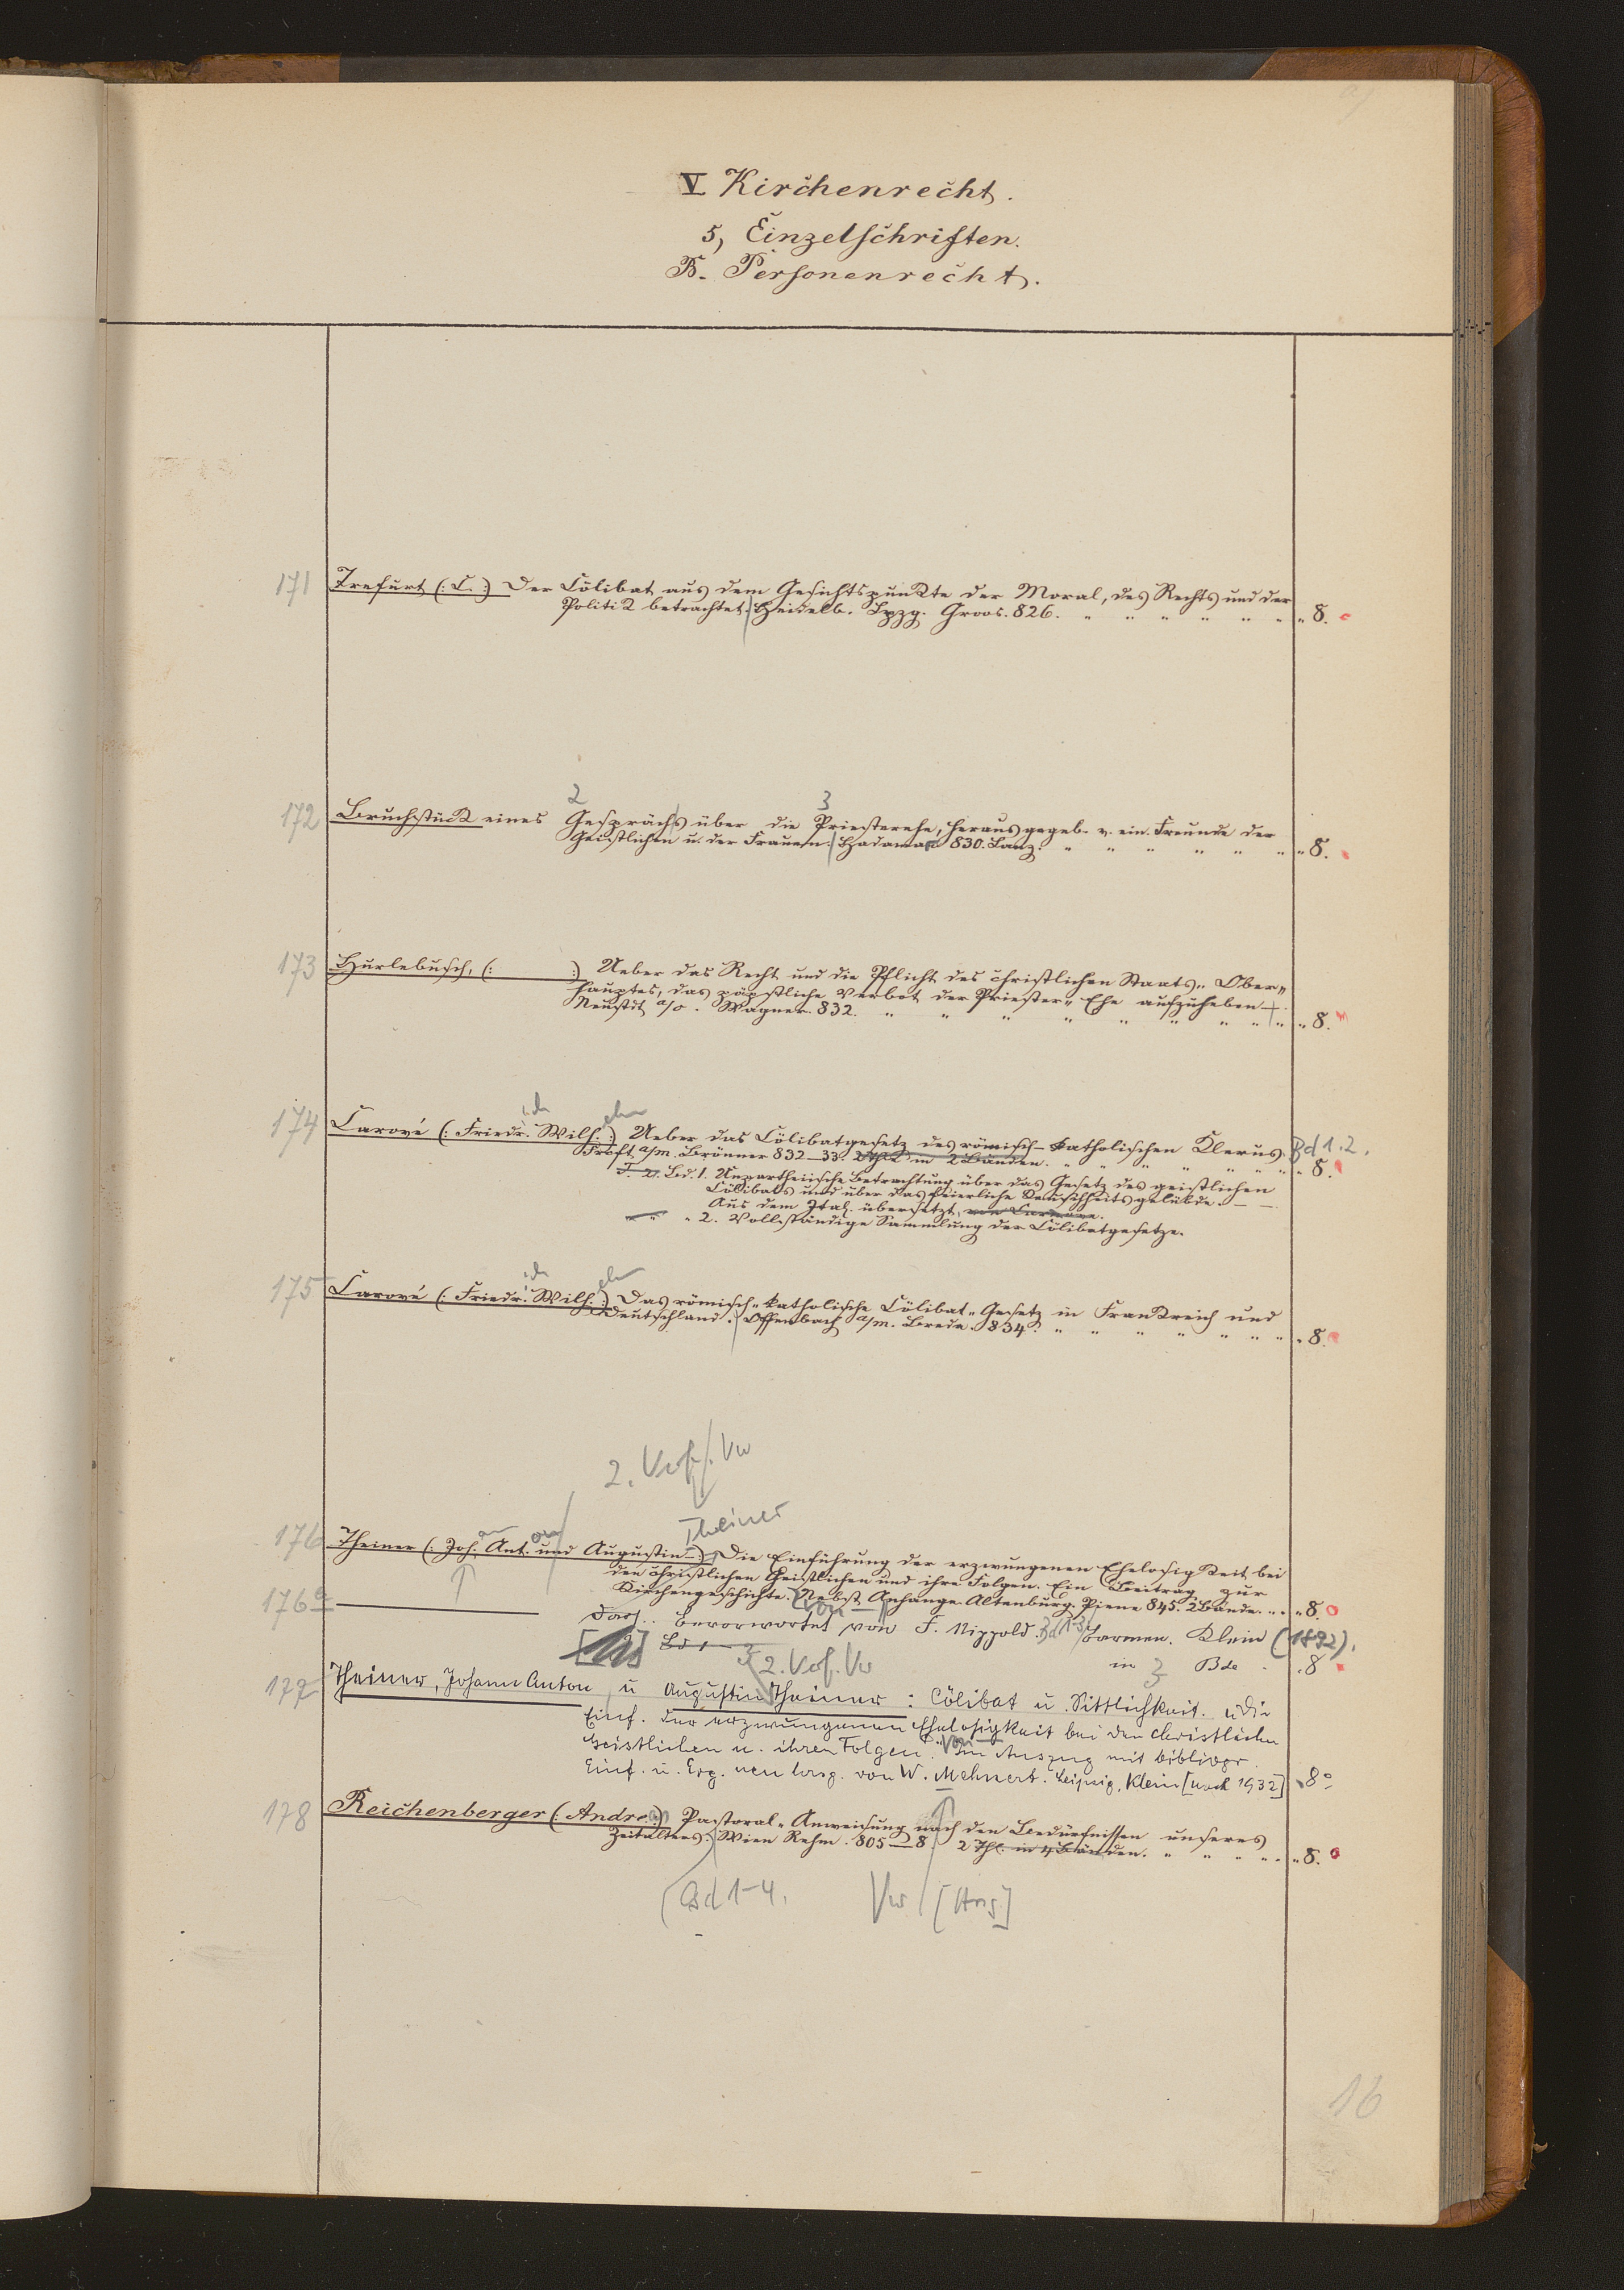 V Kirchenrecht.
5, Einzelschriften.
B. Personenrecht.
171 Trefurt (: C. :) Der Cölibat aus dem Gesichtspunkte der Moral, des Rechts und der
Politik betrachtet. Heidelb. Lpzg. Groos. 826. " " " " " " " 8.
2 3
172 Bruchstück eines Gesprächs über die Priesterehe, herausgegeb. v. ein. Freunde der
Geistlichen u. der Frauen. Hadamar 830. Lanz. " " " " " " " 8.
173 Hurlebusch, (: :) Ueber das Recht und die Pflicht des christlichen Staats-Ober-
hauptes, das päpstliche Verbot der Priester-Ehe aufzuheben.
Neustdt a/o. Wagner. 832. " " " " " " " " " 8.
174 Carové (: Friedr. Wilh. :) Ueber das Cölibatgesetz des römisch-katholischen Klerus. Bd 1.2.
Frkft. a/m. Brönner 832–33. 2 Thl in 2 Bänden. " " " " " " " 8.
Bd. 1. Unpartheiische Betrachtung über das Gesetz des geistlichen
Cölibats und über das feierliche Keuschheitsgelübde. –
Aus dem Ital. übersetzt.
" " " 2. Vollständige Sammlung der Cölibatgesetze.
175 Carové (: Friedr. Wilh. :) Das römisch-katholische Cölibat-Gesetz in Frankreich und
Deutschland. Offenbach a/m. Brede. 834. " " " " " " " 8.
2. Verf. / Vw
Theiner
176 Theiner (: Joh. Ant. und Augustin :) Die Einführung der erzwungenen Ehelosigkeit bei
den christlichen Geistlichen und ihre Folgen. Ein Beitrag zur
Kirchengeschichte. Nebst Anhange. Altenburg. Pierer 845. 2 Bände. " " " 8.
176a — Dass. bevorwortet von F. Nippold. Bd 1-3. Barmen. Klein (1892).
Bd 1 – 3 in 3 Bde . . 8
2. Verf. Vw
177 Theiner, Johann Anton u Augustin Theiner: Cölibat u. Sittlichkeit. "Die
Einf. der erzwungenen Ehelosigkeit bei den christlichen
Geistlichen u. ihren Folgen." Im Auszug mit bibliogr.
Einf. u. Erg. neu hrsg. von W. Mehnert. Leipzig, Klein [nach 1932] 8°
178 Reichenberger (: Andr. :) Pastoral-Anweisung nach den Bedürfnissen unseres
Zeitalters. Wien Rehm. 805–8. 2 Thl. in 4 Bänden. " " " " " 8.
Bd 1-4. Vw [Hrsg.]
16